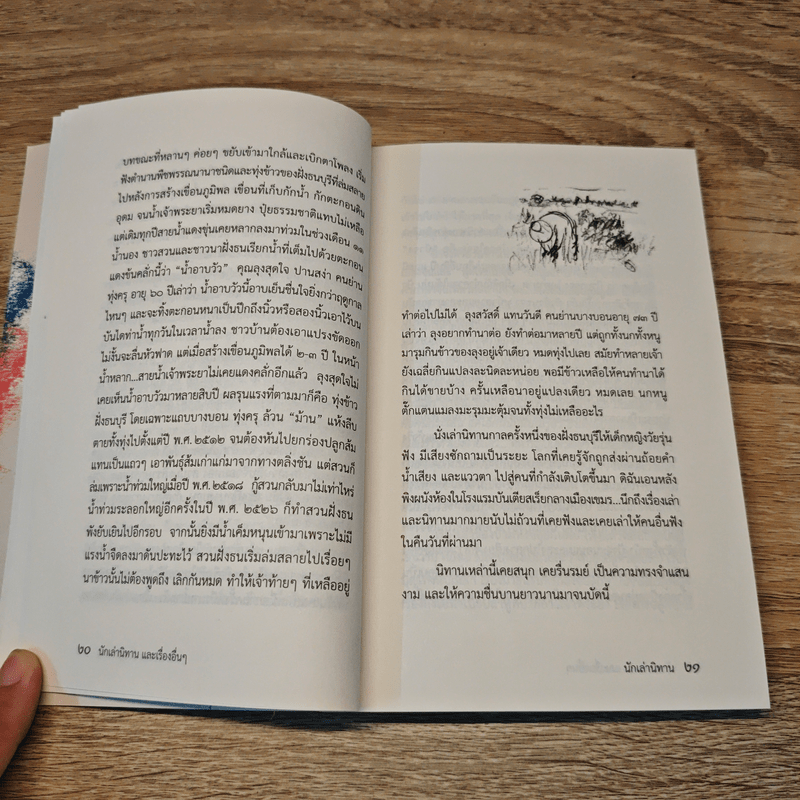 บทขณะที่หลานๆ ค่อยๆ ขยับเข้ามาใกล้และเบิกตาโพลง เริ่ม
ฟังตำนานพืชพรรณนานาชนิดและทุ่งข้าวของฝั่งธนบุรีที่ล่มสลาย
ไปหลังการสร้างเขื่อนภูมิพล เขื่อนที่เก็บกักน้ำ กักตะกอนดิน
อุดม จนน้ำเจ้าพระยาเริ่มหมดยาง ปุ๋ยธรรมชาติแทบไม่เหลือ
แต่เดิมทุกปีสายน้ำแดงขุ่นเคยหลากลงมาท่วมในช่วงเดือน ๑๑
น้ำนอง ชาวสวนและชาวนาฝั่งธนเรียกน้ำที่เต็มไปด้วยตะกอน
แดงข้นคลั่กนี้ว่า “น้ำอาบวัว” คุณลุงสุดใจ ปานสง่า คนย่าน
ทุ่งครุ อายุ ๖๐ ปีเล่าว่า น้ำอาบวัวนี้อาบเย็นชื่นใจยิ่งกว่าฤดูกาล
ไหนๆ และจะทิ้งตะกอนหนาเป็นปึกถึงนิ้วหรือสองนิ้วเอาไว้บน
บันไดท่าน้ำทุกวันในเวลาน้ำลง ชาวบ้านต้องเอาแปรงขัดออก
ไม่งั้นจะลื่นหัวฟาด แต่เมื่อสร้างเขื่อนภูมิพลได้ ๒-๓ ปี ในหน้า
น้ำหลาก...สายน้ำเจ้าพระยาไม่เคยแดงคลั่กอีกแล้ว ลุงสุดใจไม่
เคยเห็นน้ำอาบวัวมาหลายสิบปี ผลรุนแรงที่ตามมาก็คือ ทุ่งข้าว
ฝั่งธนบุรี โดยเฉพาะแถบบางบอน ทุ่งครุ ล้วน “ม้าน” แห้งลีบ
ตายทั้งทุ่งไปตั้งแต่ปี พ.ศ. ๒๕๑๒ จนต้องหันไปยกร่องปลูกส้ม
แทนเป็นแถวๆ เอาพันธุ์ส้มเก่าแก่มาจากทางตลิ่งชัน แต่สวนก็
ล่มเพราะน้ำท่วมใหญ่เมื่อปี พ.ศ. ๒๕๑๘ กู้สวนกลับมาไม่เท่าไหร่
น้ำท่วมระลอกใหญ่อีกครั้งในปี พ.ศ. ๒๕๒๖ ก็ทำสวนฝั่งธน
พังยับเยินไปอีกรอบ จากนั้นยิ่งมีน้ำเค็มหนุนเข้ามาเพราะไม่มี
แรงน้ำจืดลงมาดันปะทะไว้ สวนฝั่งธนเริ่มล่มสลายไปเรื่อยๆ
นาข้าวนั้นไม่ต้องพูดถึง เลิกกันหมด ทำให้เจ้าท้ายๆ ที่เหลืออยู่
๒๐ นักเล่านิทาน และเรื่องอื่นๆ
ทำต่อไปไม่ได้ ลุงสวัสดิ์ แทนวันดี คนย่านบางบอนอายุ ๗๓ ปี
เล่าว่า ลุงอยากทำนาต่อ ยังทำต่อมาหลายปี แต่ถูกทั้งนกทั้งหนู
มารุมกินข้าวของลุงอยู่เจ้าเดียว หมดทุ่งไปเลย สมัยทำหลายเจ้า
ยังเฉลี่ยกินแปลงละนิดละหน่อย พอมีข้าวเหลือให้คนทำนาได้
กินได้ขายบ้าง ครั้นเหลือนาอยู่แปลงเดียว หมดเลย นกหนู
ตั๊กแตนแมลงมะรุมมะตุ้มจนทั้งทุ่งไม่เหลืออะไร
นั่งเล่านิทานกาลครั้งหนึ่งของฝั่งธนบุรีให้เด็กหญิงวัยรุ่น
ฟัง มีเสียงซักถามเป็นระยะ โลกที่เคยรู้จักถูกส่งผ่านถ้อยคำ
น้ำเสียง และแววตา ไปสู่คนที่กำลังเติบโตขึ้นมา ดิฉันเอนหลัง
พิงผนังห้องในโรงแรมบันเตียสเรียกลางเมืองเขมร...นึกถึงเรื่องเล่า
และนิทานมากมายนับไม่ถ้วนที่เคยฟังและเคยเล่าให้คนอื่นฟัง
ในคืนวันที่ผ่านมา
นิทานเหล่านี้เคยสนุก เคยรื่นรมย์ เป็นความทรงจำแสน
งาม และให้ความชื่นบานยาวนานมาจนบัดนี้
นักเล่านิทาน ๒๑